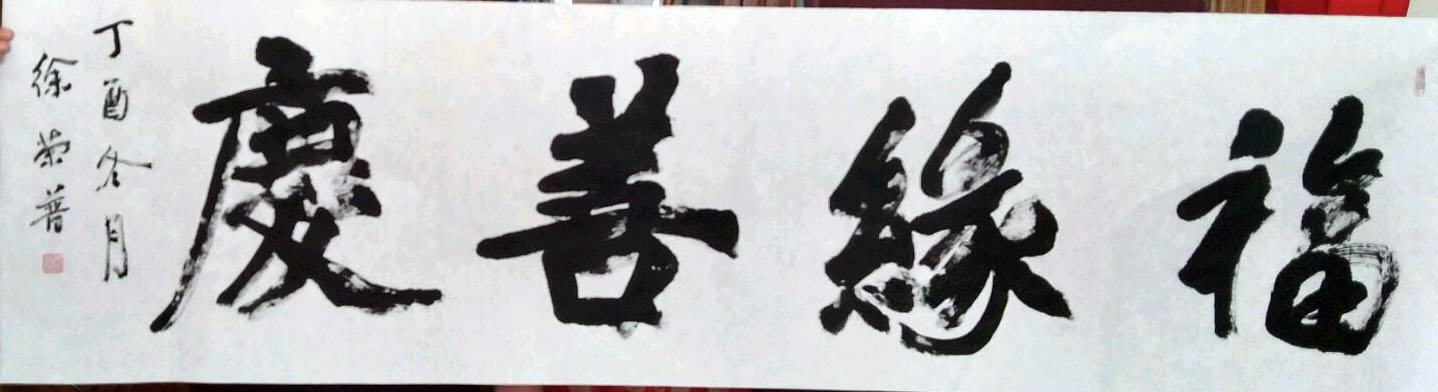 福緣善慶
丁酉冬月
徐荣普